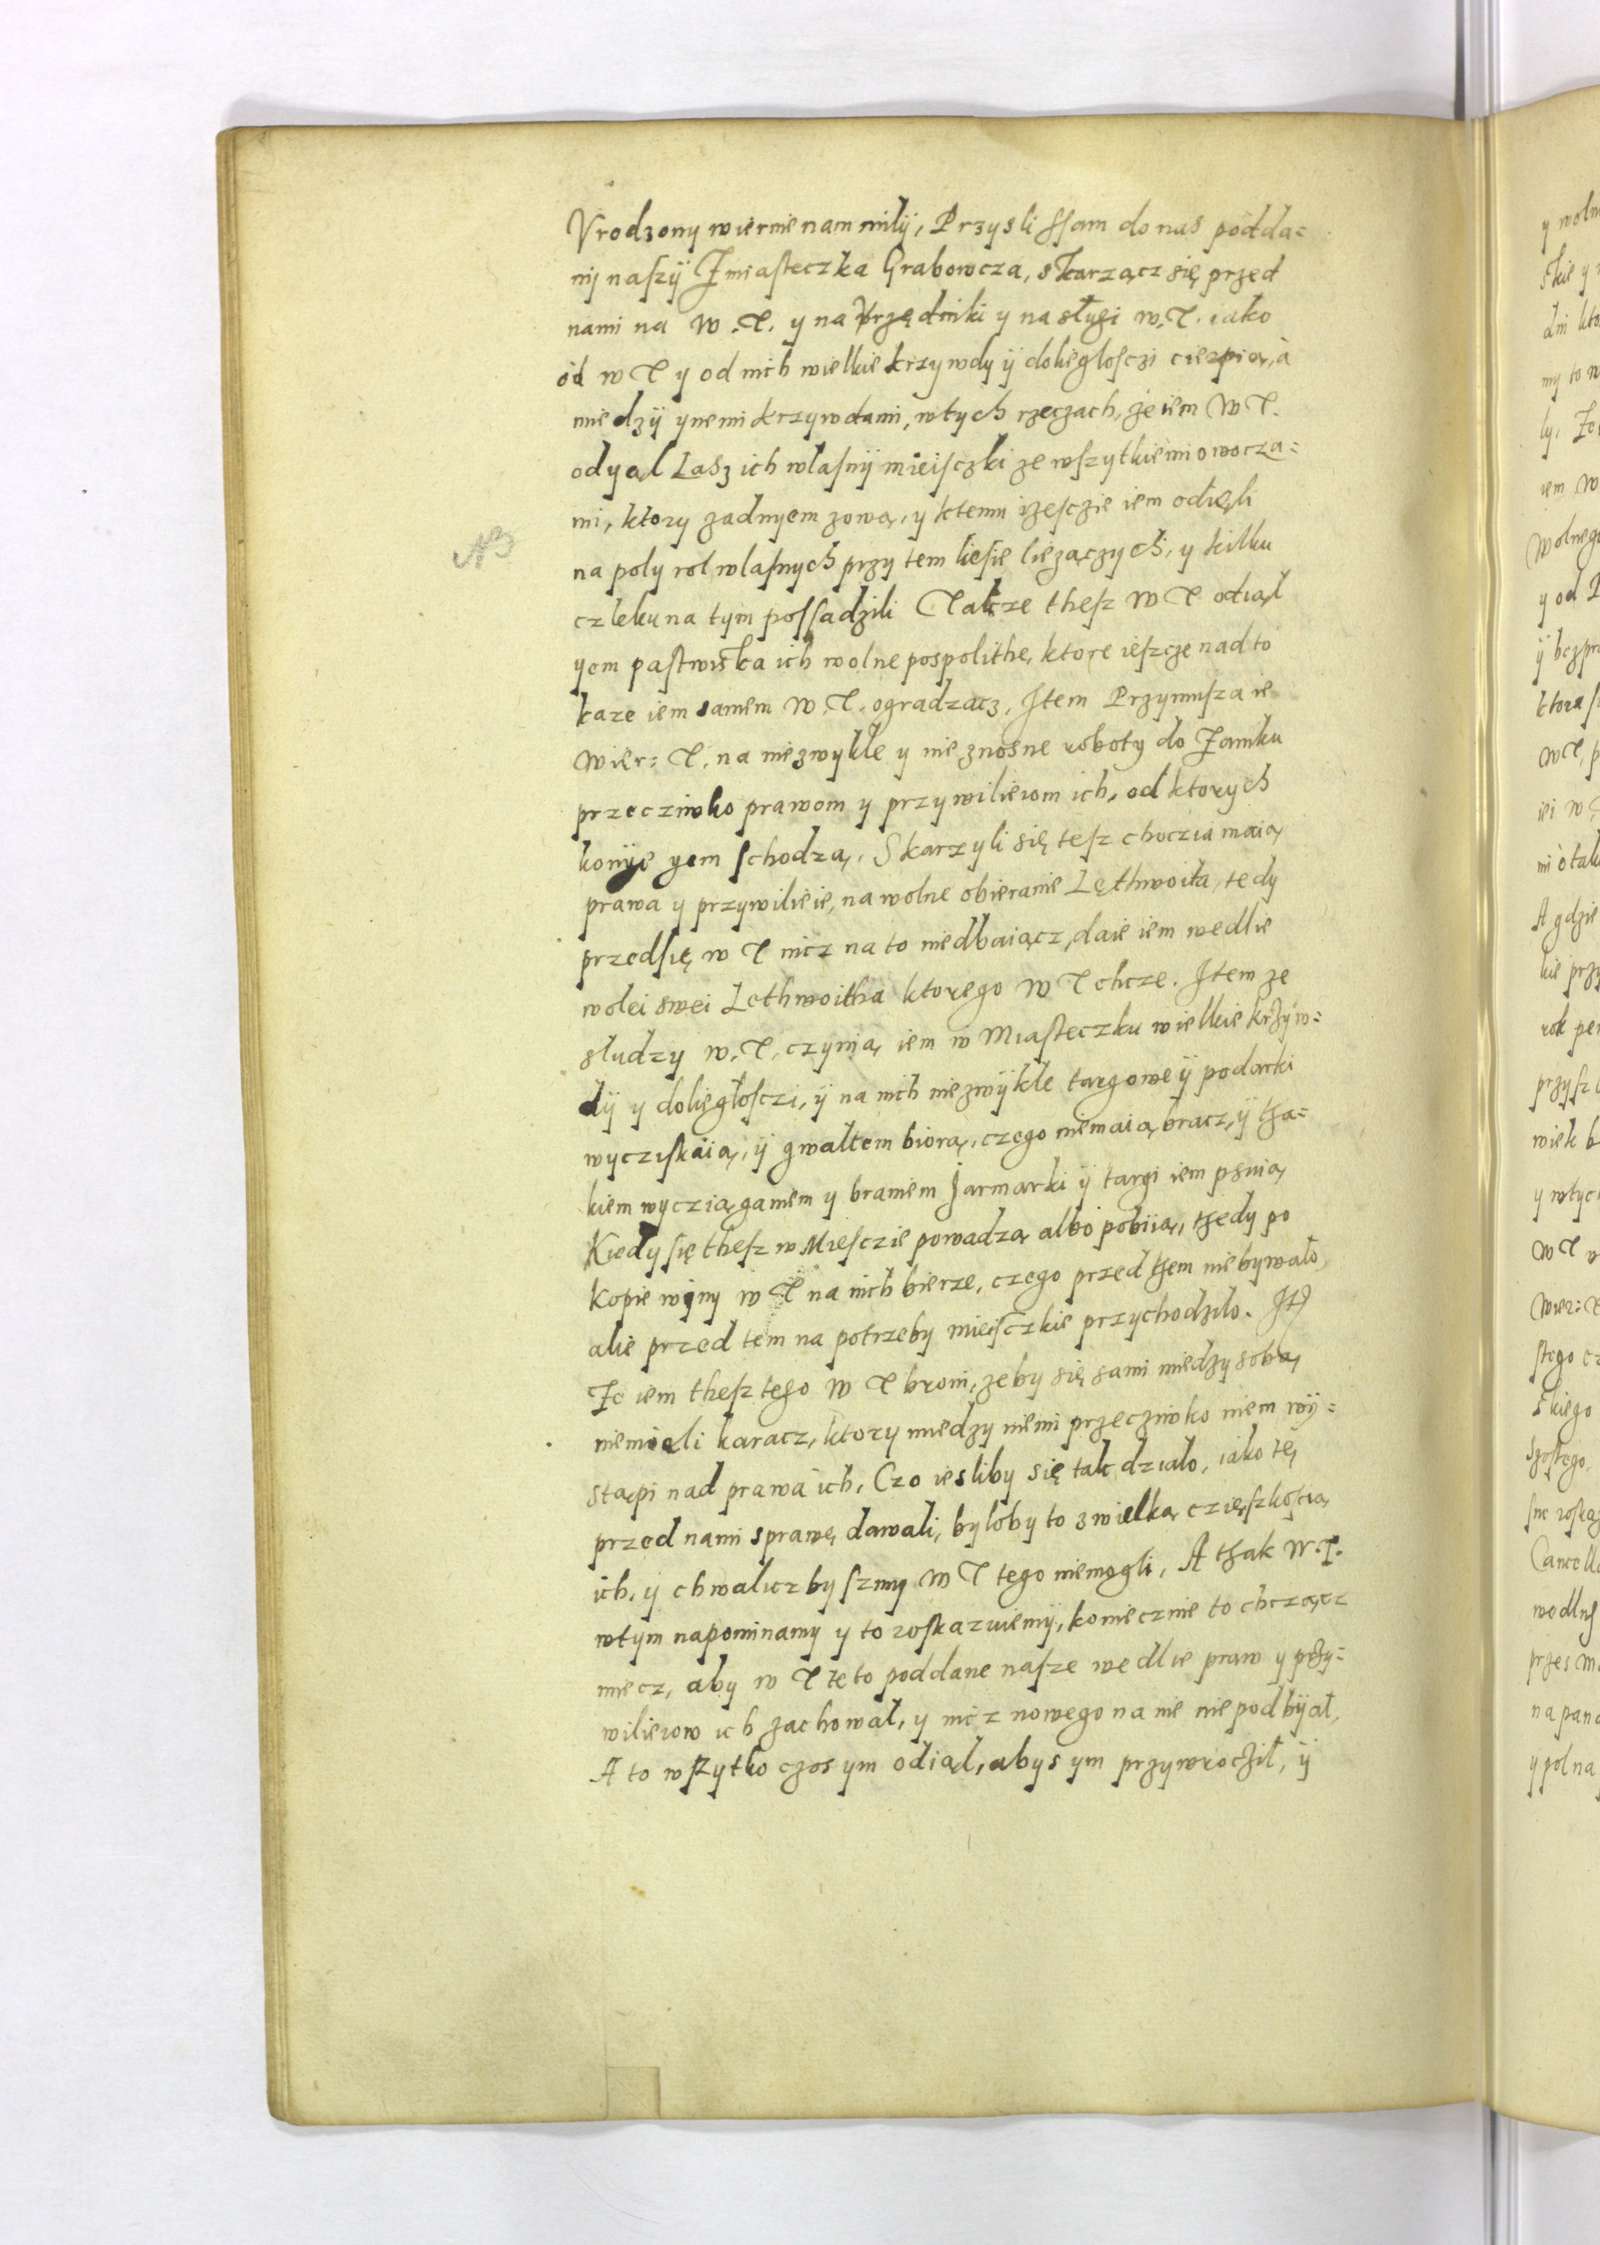 Vrodzony wiernie nam milÿ, Przysli ssam do nas podda=
nij naszÿ Z miasteczka Grabowcza, skarzącz się przed
nami na W. T. y na Vrzędniki y na sługi w. T. iako
od w T y od nich wielkie krzywdy ÿ dolięglosczi cierpią, à
miedzÿ ynemi krzywdami, wtych rzeczach, że iem W T.
odyąl Lasz ich wlasnÿ mieisczki ze wszytkiemi owocza=
mi, ktory zadnyem zową, y ktemu izesczie iem odięli
na poly rol wlasnych przy tem liesie liezączych, y kilku
czleku na tym possadzili Takze thesz W T odiąl
yem pastwiska ich wolne pospolithe, ktore ieszcze nad to
kaze iem samem W. T. ogradzacz, Item Przymusza ie
Wier: T. na niezwykle y nieznosne roboty do Zamku
przecziwko prawom y przywiliewom ich, od ktorych
konÿe yem schodzą. Skarzyli się tesz choczia maią
prawa y przywilieie, na wolne obieranie Lęthwoita, tedy
przedsię w T nicz na to niedbaiącz, daie iem wedlie
wolei swei Lethwoitha ktorego W T chcze. Item ze
słudzy w. T. czynią iem w Miasteczku wielkie krzÿw=
dÿ y dolięgłosczi, ÿ na nich niezwÿkle targowe ÿ podarki
wycziskaią, ÿ gwaltem biorą, czego niemaią bracz, ÿ tha=
kiem wycziągamem y braniem Jarmarki ÿ targi iem psuią
Kiedy się thesz w Miesczie powadzą albo pobiią, thedy po
kopie winy w T na nich bierze, czego przed them niebywało,
alie przed tem na potrzeby mieisczkie przychodziło. It
Ze iem thesz tego W T broni, zeby się sami miedzy sobą
niemieli karacz, ktory miedzy niemi przecziwko niem wÿ=
stąpi nad prawa ich, Czo iesliby się tak dzialo, iako tę
przed nami sprawę dawali, byloby to z wielką cziężkoscią
ich, y chwalicz by szmy W T tego niemogli, A thak W T.
wtym napominamy y to roskazuiemÿ, koniecznie to chcząc
miecz, aby w T te to poddane nasze wedlie praw y przy=
wiliewow ich zachowal, y nicz nowego na nie niepodbÿal,
A to wszytko czos ym odiąl, abys ym przywroczil, ÿ